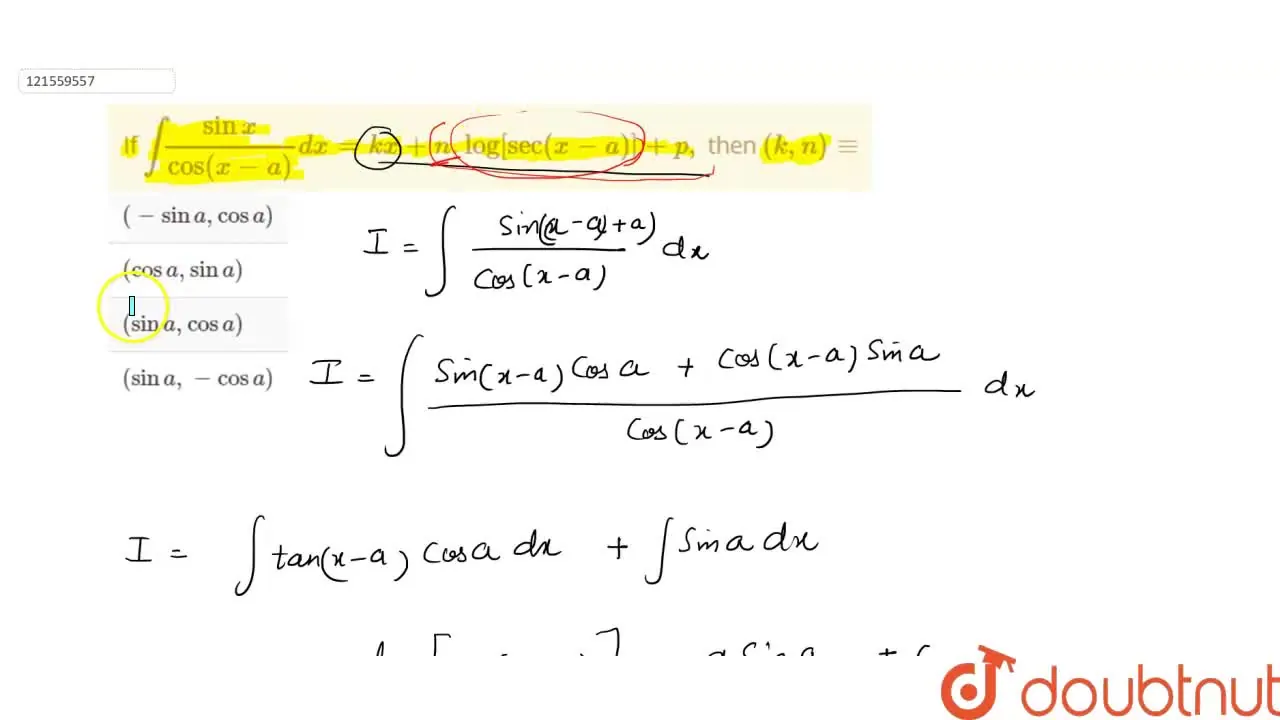 121559557
If ∫ sin x / cos(x − a) dx = kx + n log[sec(x − a)] + p, then (k, n) ≡
(− sin a, cos a)
(cos a, sin a)
(sin a, cos a)
(sin a, − cos a)
I = ∫ Sin((x-a)+a) / Cos(x-a) dx
I = ∫ Sin(x-a) Cos a + Cos(x-a) Sin a / Cos(x-a) dx
I = ∫ tan(x-a) Cos a dx + ∫ Sin a dx
doubtnut